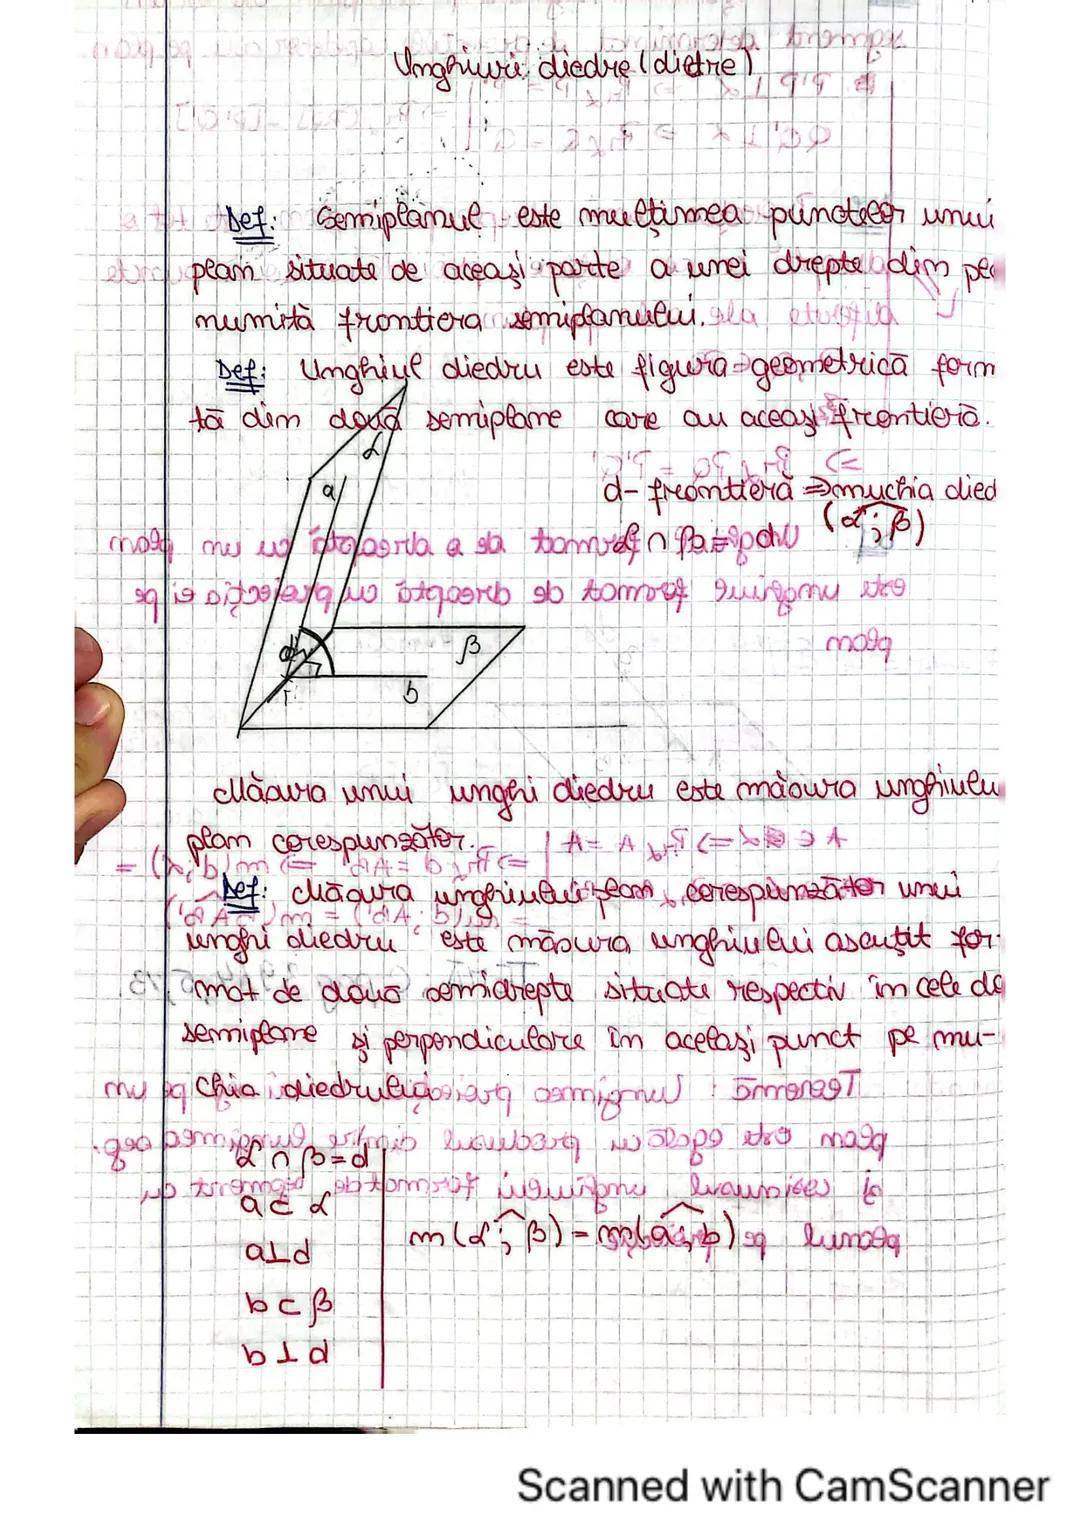 Unghiuri diedre (dietre)
Def: Semiplanul este mulțimea punctelor unui
plan situate de aceași parte a unei drepte din pl
numită frontiera semiplanului.
Def: Unghiul diedru este figura geometrică form
tă din două semiplane care au aceași frontieră.
α
a
d- frontieră ⇒ muchia died
(α; β)
α ∩ β = d
d
β
b
Măsura unui unghi diedru este măsura unghiulu
plan corespunzător.
Def: Măsura unghiului plan corespunzător unui
unghi diedru este măsura unghiului ascuțit for-
mat de două semidrepte situate respectiv în cele do
semiplane și perpendiculare în același punct pe mu-
chia diedrului
α ∩ β = d
a ⊂ α
a⊥d
m(α; β) = m(a; b)
b ⊂ β
b ⊥ d
Scanned with CamScanner